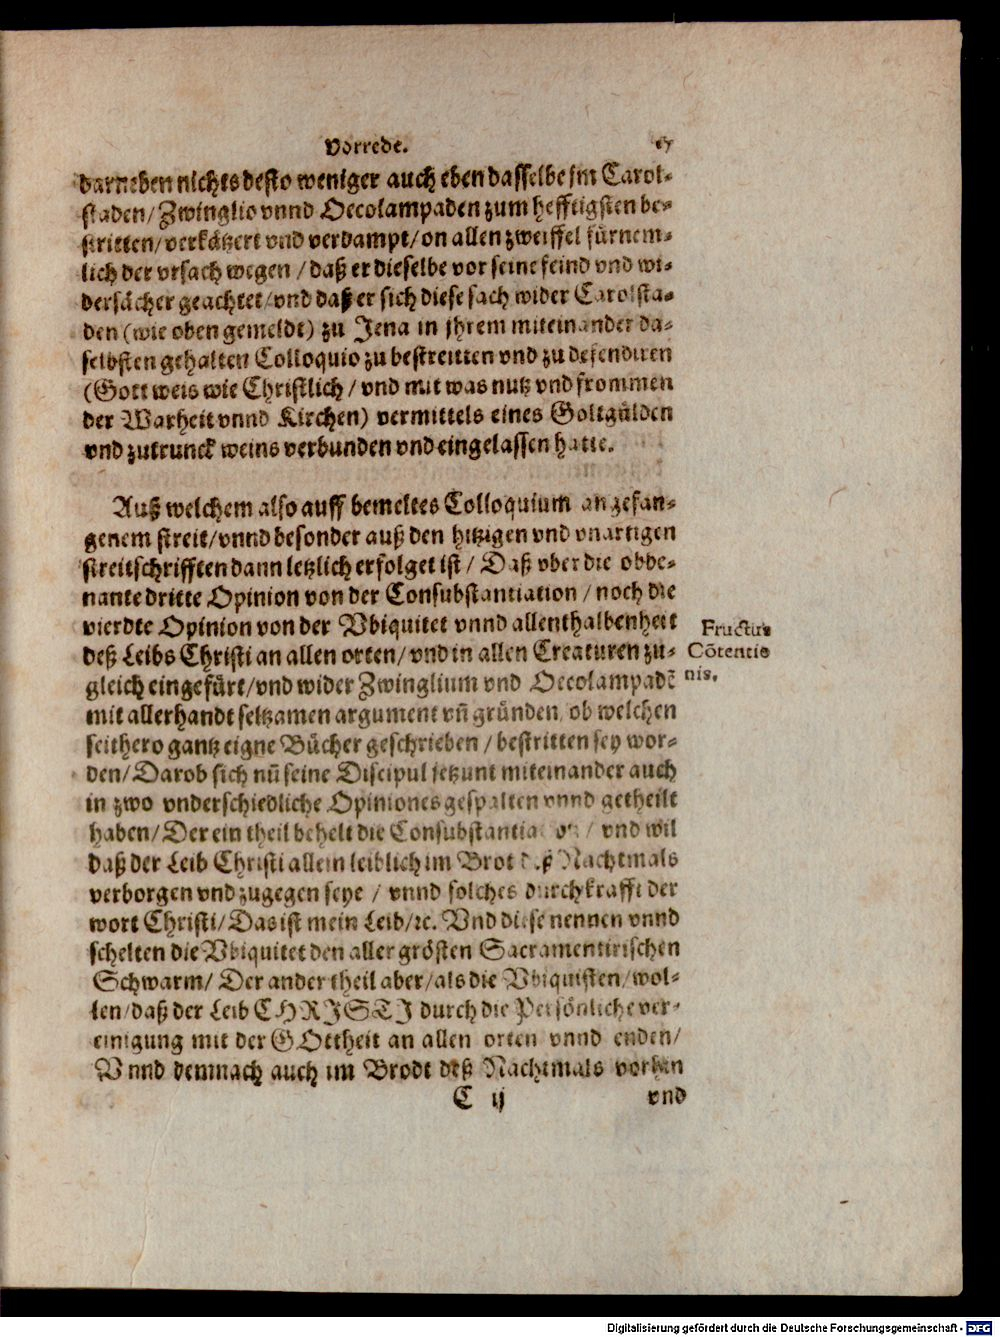 Vorrede.
darneben nichts desto weniger auch eben dasselbe jm Carol-
staden/Zwinglio vnnd Oecolampaden zum hefftigsten be-
stritten/verkätzert vnd verdampt/on allen zweiffel fürnem-
lich der vrsach wegen/daß er dieselbe vor seine feind vnd wi-
dersächer geachtet/vnd daß er sich diese sach wider Carolsta-
den (wie oben gemeldt) zu Jena in jhrem miteinander da-
selbsten gehalten Colloquio zu bestreitten vnd zu defendiren
(Gott weis wie Christlich/vnd mit was nutz vnd frommen
der Warheit vnnd Kirchen) vermittels eines Goltgülden
vnd zutrunck weins verbunden vnd eingelassen hatte.
Auß welchem also auff bemeltes Colloquium angefan-
genem streit/vnnd besonder auß den hitzigen vnd vnartigen
streitschrifften dann letzlich erfolget ist/Daß vber die obbe-
nante dritte Opinion von der Consubstantiation/noch die
vierdte Opinion von der Vbiquitet vnnd allenthalbenheit
deß Leibs Christi an allen orten/vnd in allen Creaturen zu-
gleich eingefürt/vnd wider Zwinglium vnd Oecolampadē
mit allerhandt seltzamen argument vn̄ gründen/ob welchen
seithero gantz eigne Bücher geschrieben/bestritten sey wor-
den/Darob sich nū seine Discipul jetzunt miteinander auch
in zwo vnderschiedliche Opiniones gespalten vnnd getheilt
haben/Der ein theil behelt die Consubstantiation/vnd wil
daß der Leib Christi allein leiblich im Brot deß Nachtmals
verborgen vnd zugegen seye/vnnd solches durch krafft der
wort Christi/Das ist mein Leib/ꝛc. Vnd diese nennen vnnd
schelten die Vbiquitet den aller grösten Sacramentirischen
Schwarm/Der ander theil aber/als die Vbiquisten/wol-
len/daß der Leib CHRISTI durch die Persönliche ver-
einigung mit der GOttheit an allen orten vnnd enden/
Vnnd demnach auch im Brodt deß Nachtmals vorhin
C ij vnd
Fructus
Cōtentio
nis.
Digitalisierung gefördert durch die Deutsche Forschungsgemeinschaft - DFG